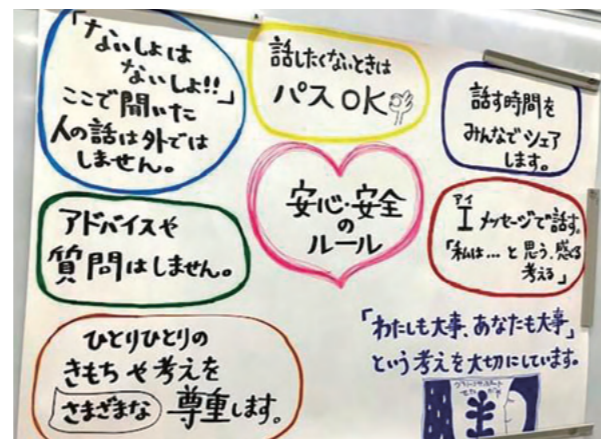 「ないしょは
ないしょ!!」
ここで聞いた
人の話は外では
しません。
話したくないときは
パスOK
話す時間を
みんなでシェア
します。
安心・安全
の
ルール
アドバイスや
質問はしません。
アイ
I メッセージで話す。
「私は…と思う、感じる
考える」
ひとりひとりの
さまざまな
きもちや考えを
尊重します。
「わたしも大事、あなたも大事」
という考えを大切にしています。